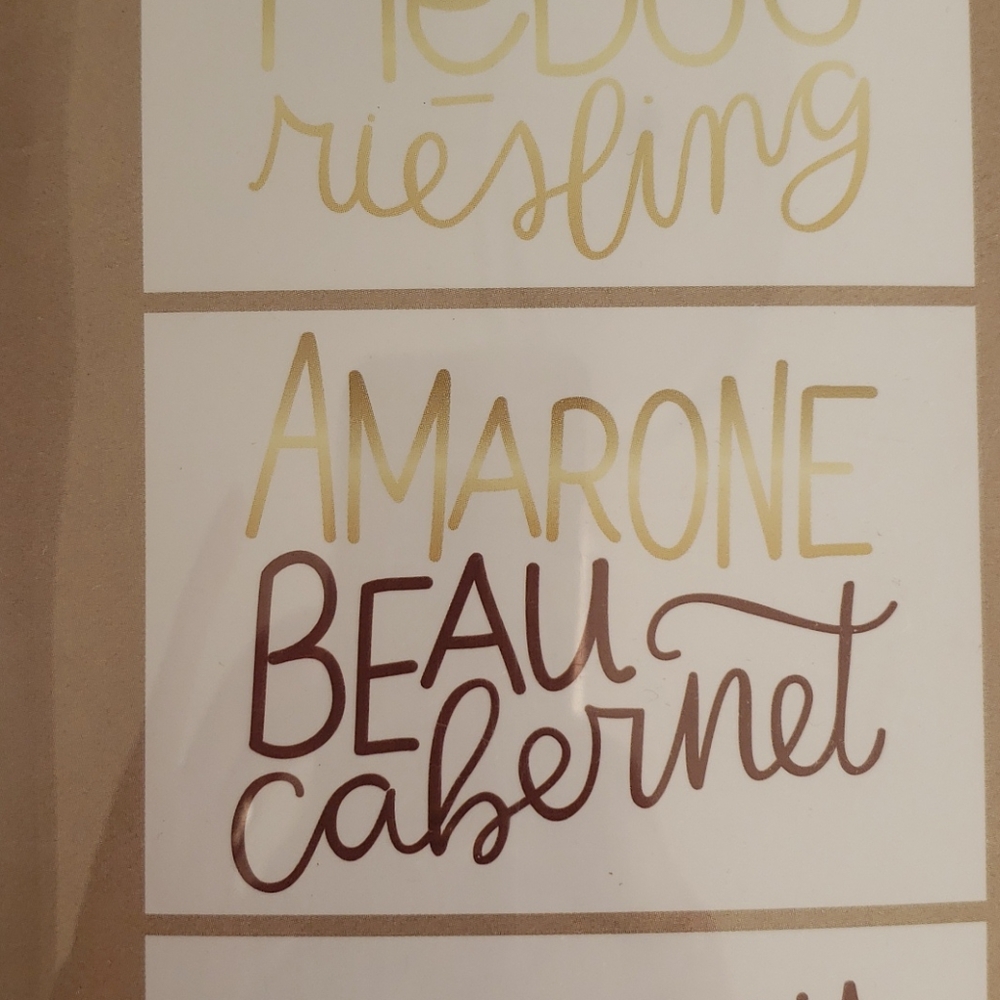 riesling
AMARONE
BEAU
cabernet